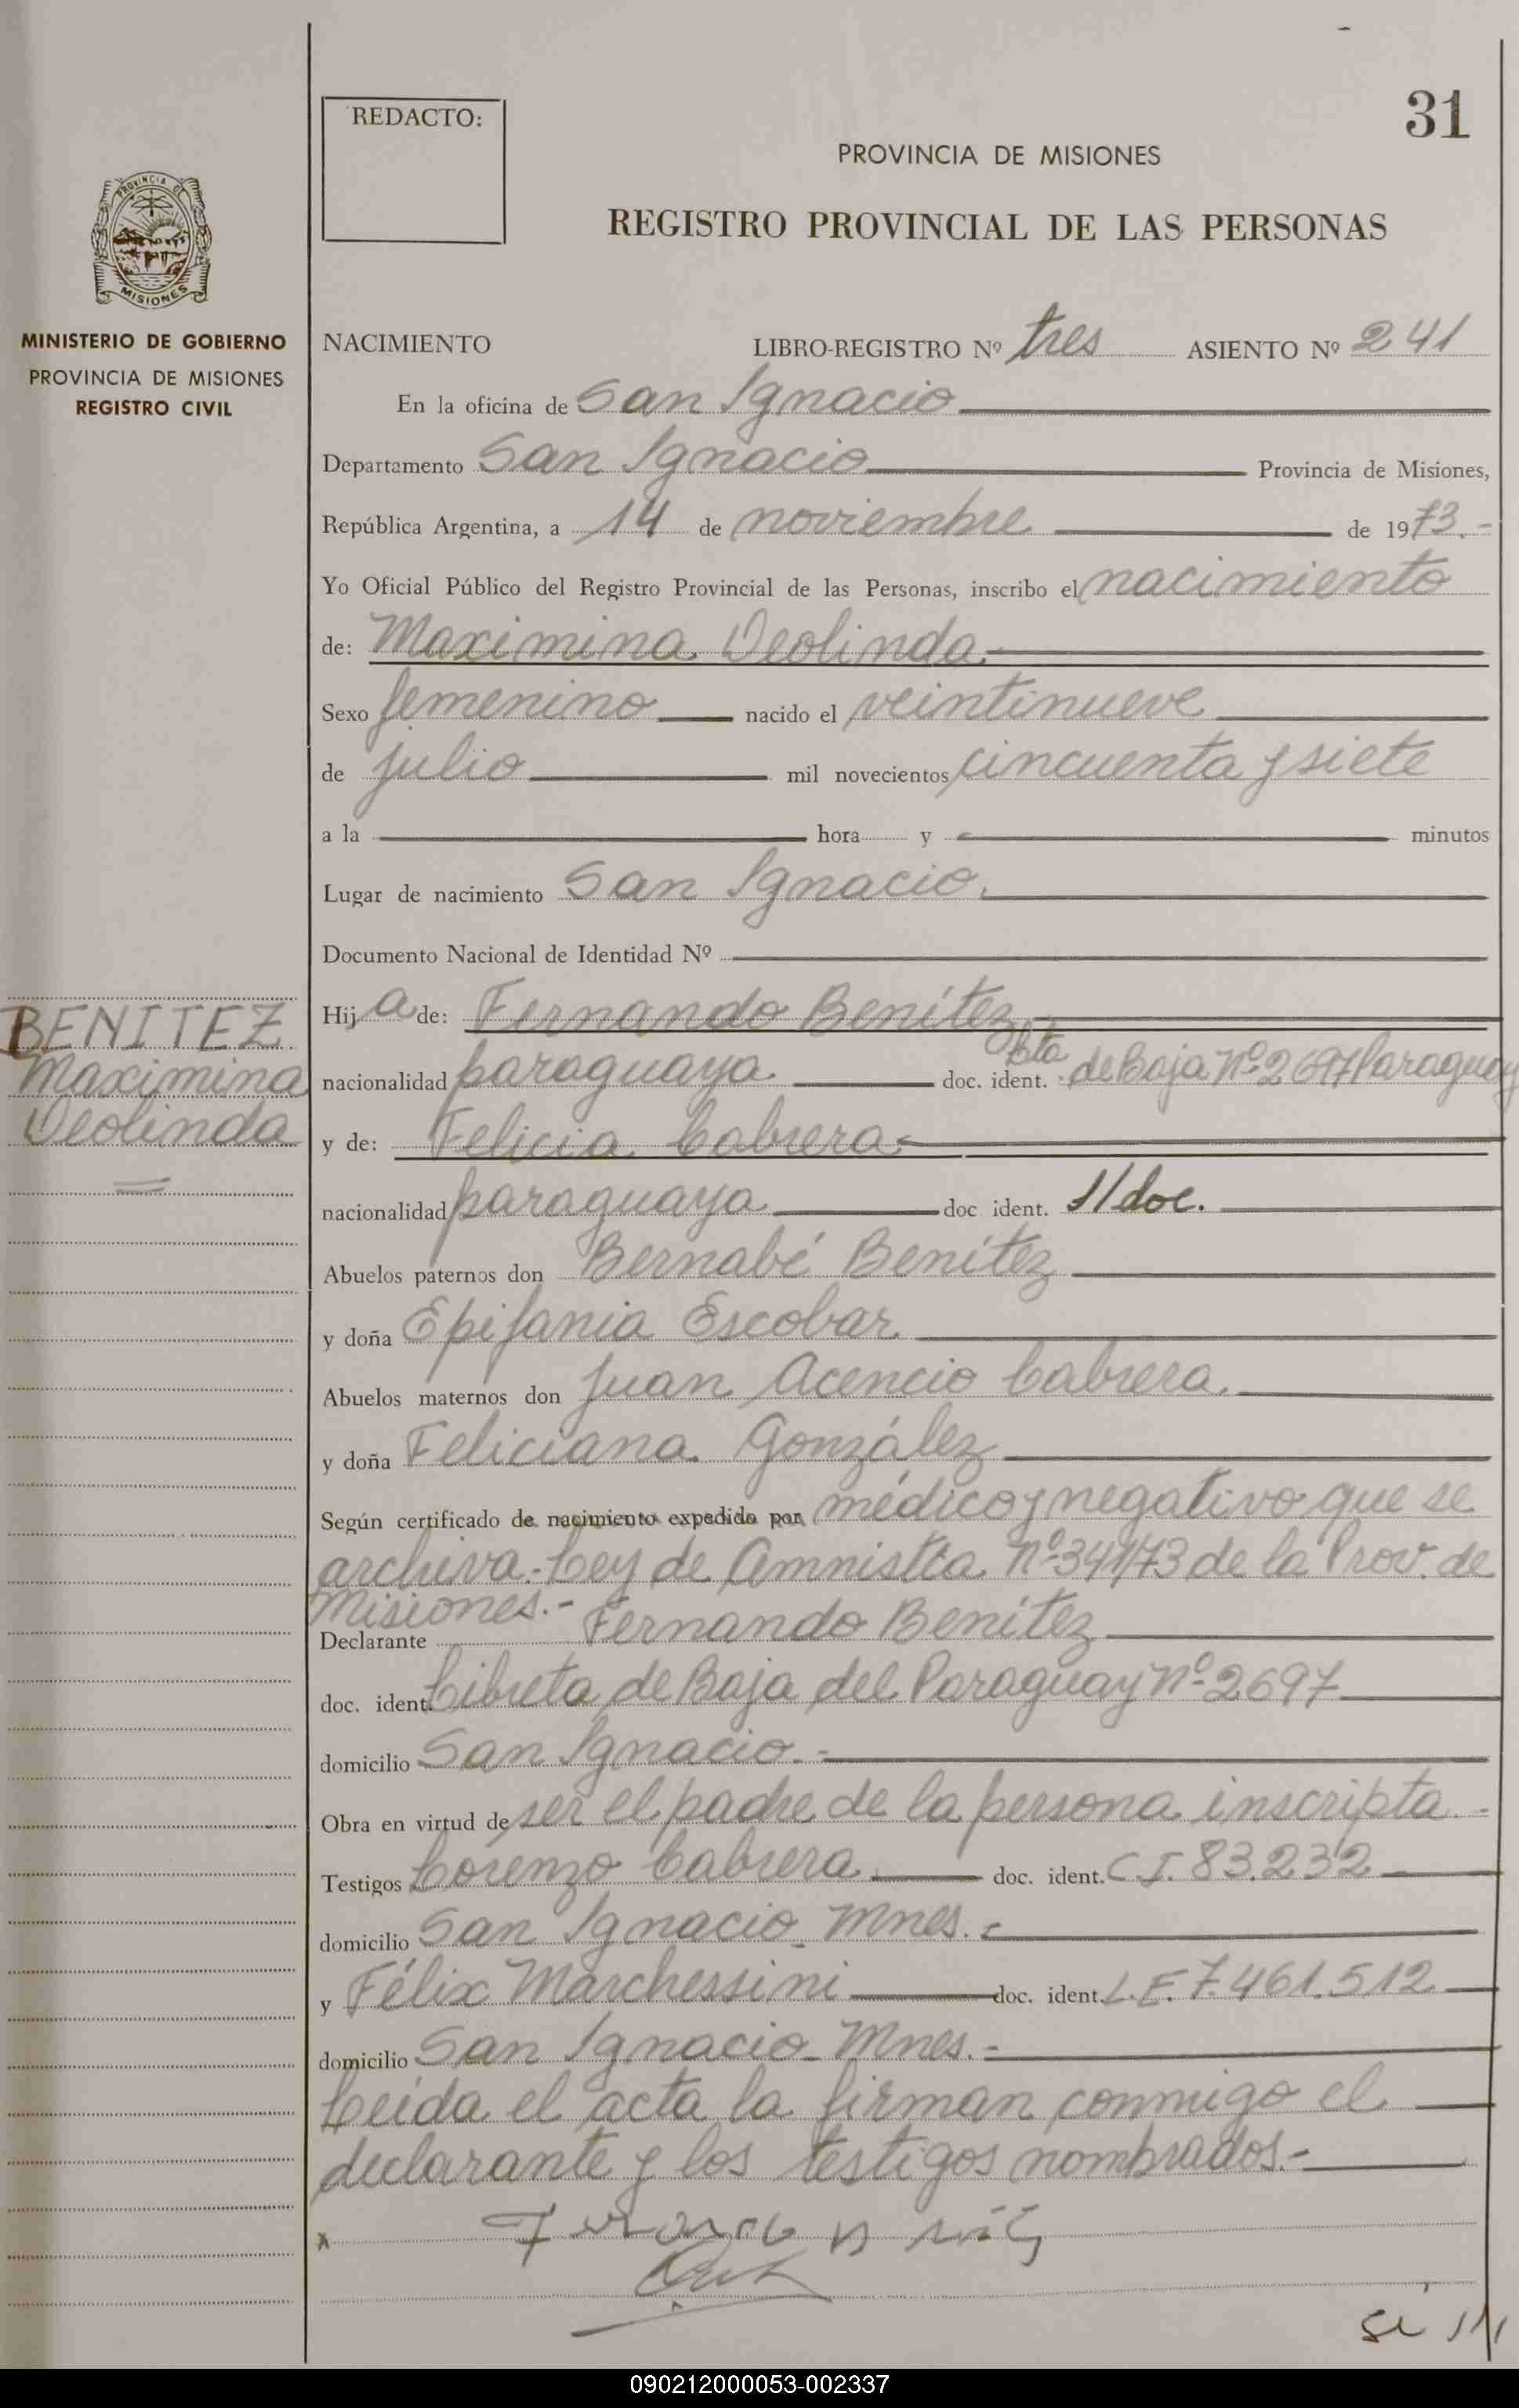 31
REDACTO:
PROVINCIA DE MISIONES
REGISTRO PROVINCIAL DE LAS PERSONAS
PROVINCIA DE
MISIONES
MINISTERIO DE GOBIERNO
PROVINCIA DE MISIONES
REGISTRO CIVIL
NACIMIENTO LIBRO-REGISTRO Nº tres ASIENTO Nº 241
En la oficina de San Ignacio
Departamento San Ignacio Provincia de Misiones,
República Argentina, a 14 de noviembre de 1973.-
Yo Oficial Público del Registro Provincial de las Personas, inscribo el nacimiento
de: Maximina Deolinda
Sexo femenino nacido el veintinueve
de julio mil novecientos cincuenta y siete
a la hora y minutos
Lugar de nacimiento San Ignacio.
Documento Nacional de Identidad Nº
BENITEZ
Maximina
Deolinda
Hija de: Fernando Benítez
nacionalidad paraguaya doc. ident. Lbta de Baja Nº 2697 Paraguay
y de: Felicia Cabrera
nacionalidad paraguaya doc ident. S/doc.
Abuelos paternos don Bernabé Benítez
y doña Epifania Escobar
Abuelos maternos don Juan Acencio Cabrera.
y doña Feliciana González
Según certificado de nacimiento expedido por médico y negativo que se
archiva.- Ley de Amnistía Nº 341/73 de la Prov. de
Misiones.-
Declarante Fernando Benítez
doc. ident. Libreta de Baja del Paraguay Nº 2697
domicilio San Ignacio.-
Obra en virtud de ser el padre de la persona inscripta.-
Testigos Lorenzo Cabrera doc. ident. C.I. 83.232
domicilio San Ignacio Mnes.-
y Félix Marchessini doc. ident. L.E. 7.461.512
domicilio San Ignacio Mnes.-
Leída el acta la firman conmigo el
declarante y los testigos nombrados.-
090212000053-002337